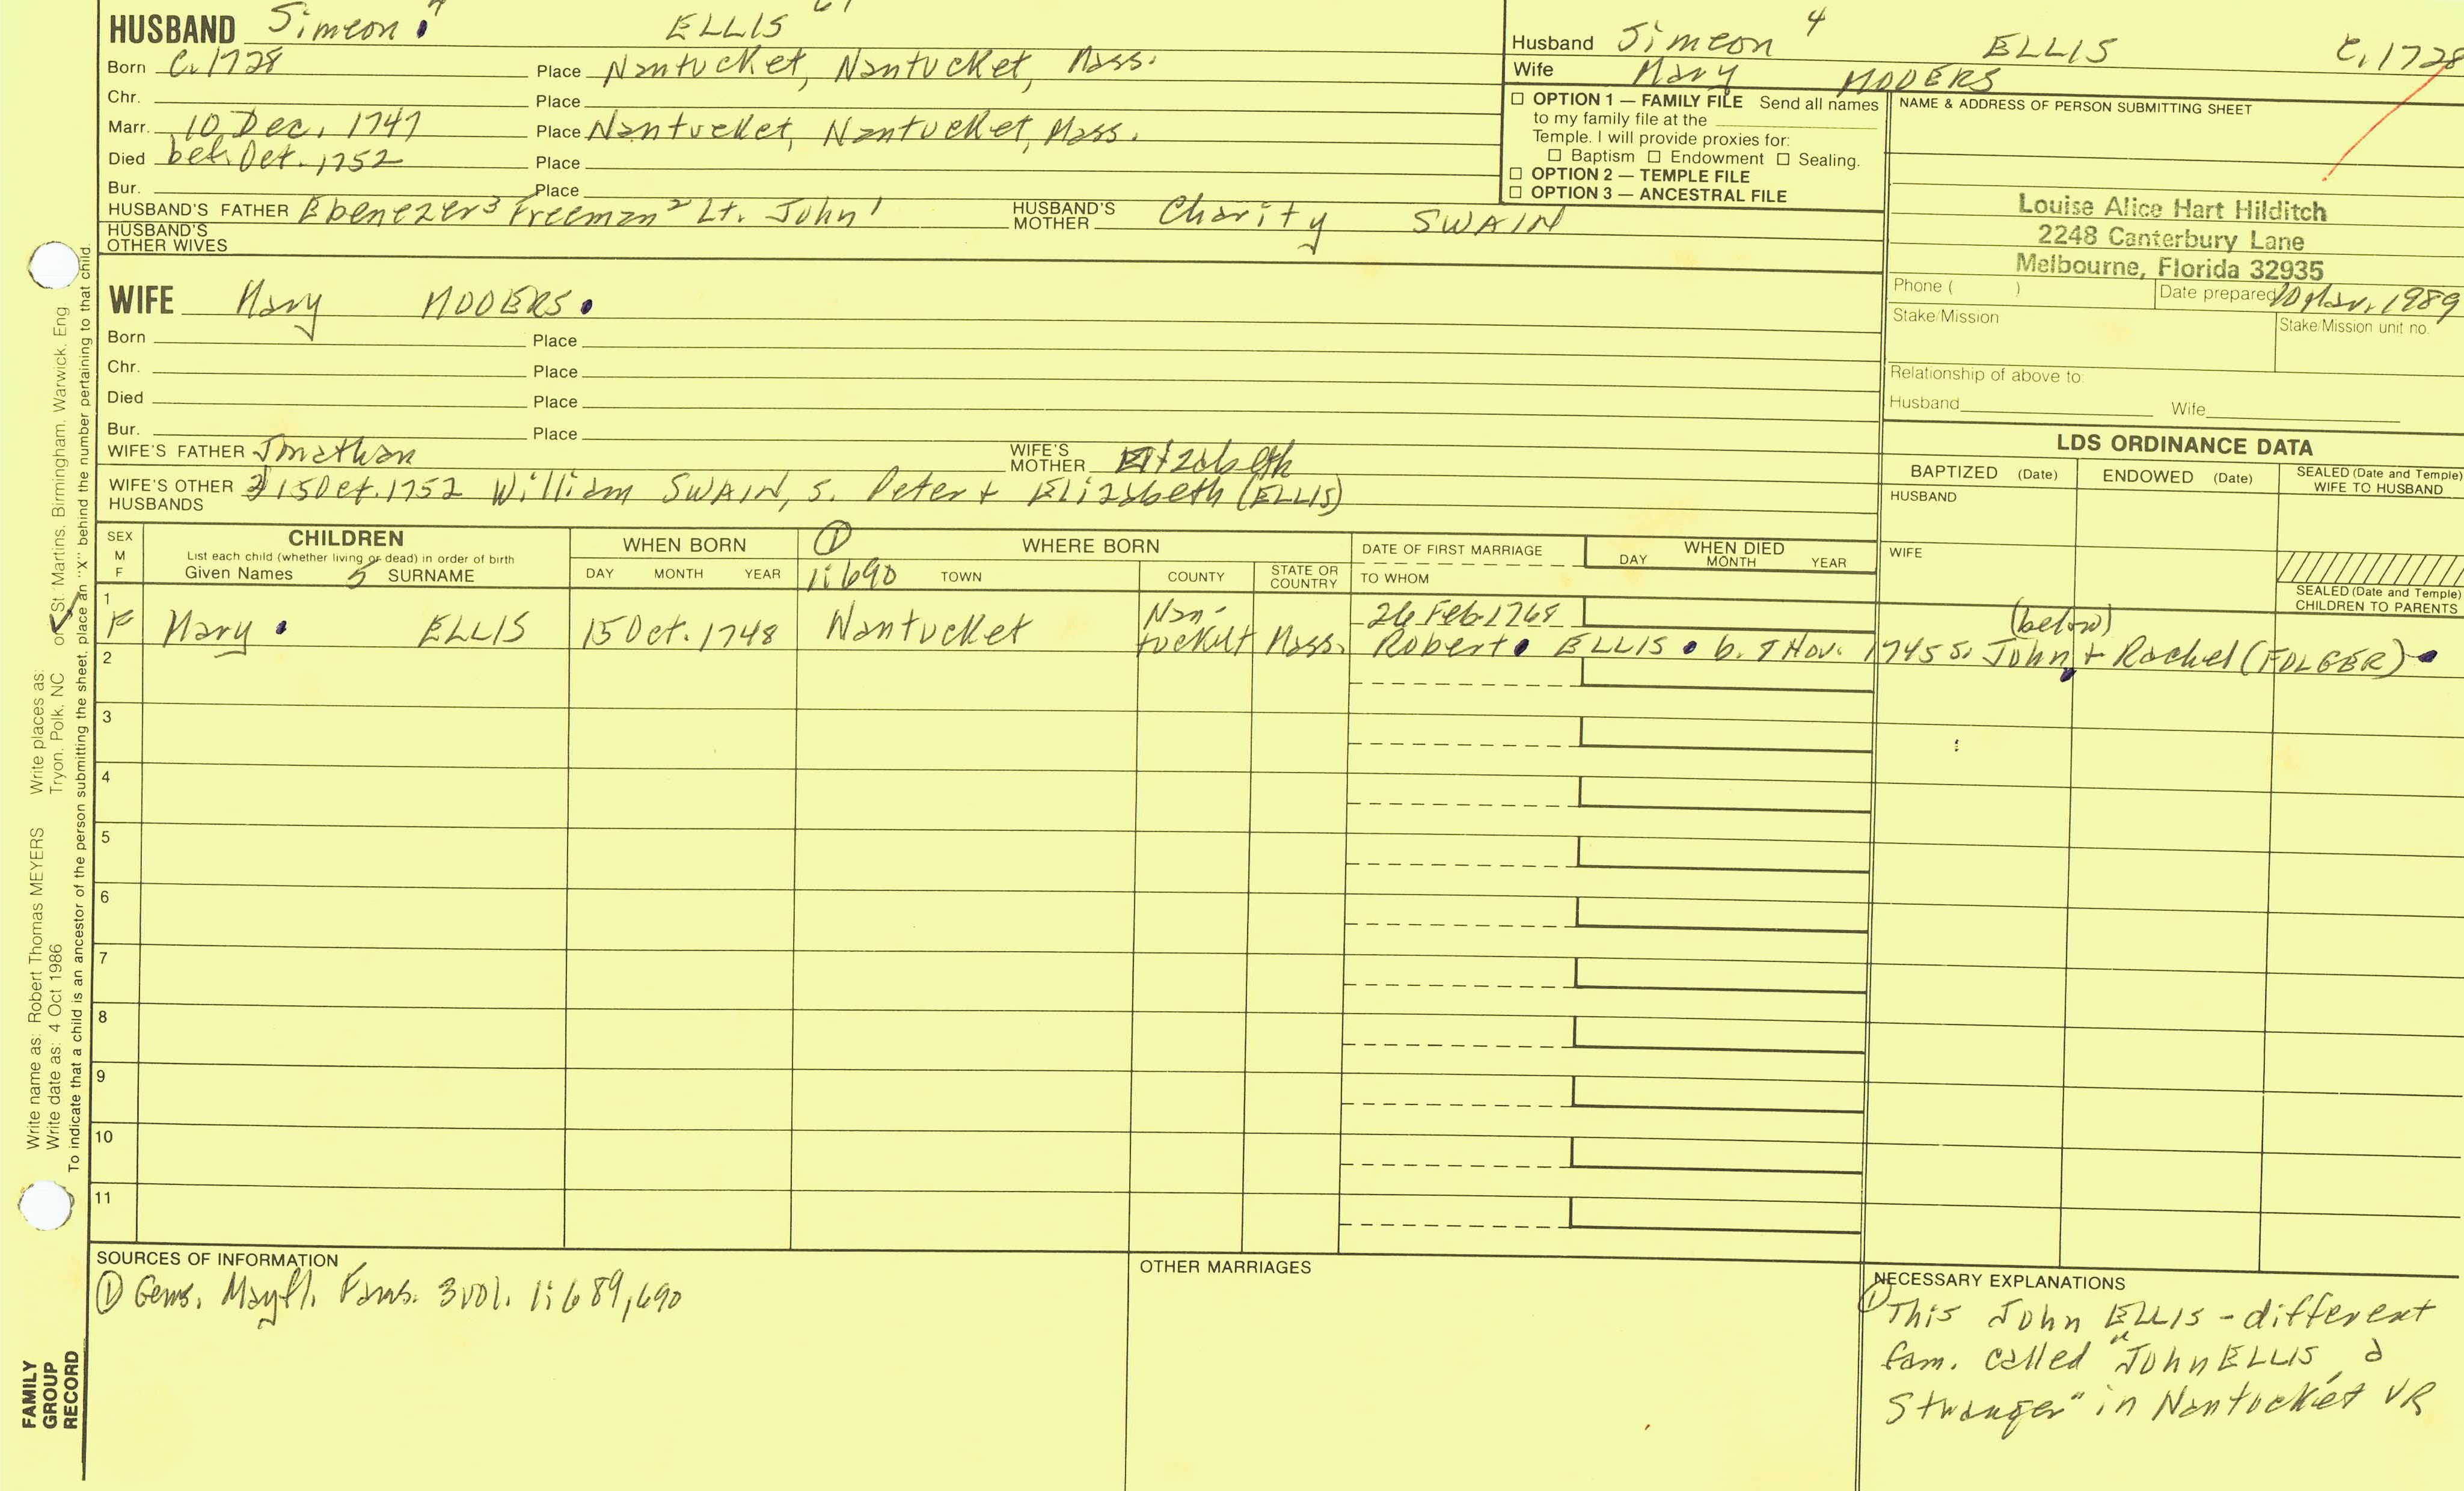 HUSBAND Simeon 4 ELLIS
Born C.1728 Place Nantucket, Nantucket, Mass.
Chr. Place
Marr. 10 Dec. 1747 Place Nantucket, Nantucket, Mass.
Died bef. Oct. 1752 Place
Bur. Place
HUSBAND'S FATHER Ebenezer 3 Freeman 2 Lt. John 1 HUSBAND'S MOTHER Charity SWAIN
HUSBAND'S OTHER WIVES
Husband Simeon 4 ELLIS C.1728
Wife Mary MOOERS
☐ OPTION 1 — FAMILY FILE Send all names
to my family file at the
Temple. I will provide proxies for:
☐ Baptism ☐ Endowment ☐ Sealing.
☐ OPTION 2 — TEMPLE FILE
☐ OPTION 3 — ANCESTRAL FILE
NAME & ADDRESS OF PERSON SUBMITTING SHEET
Louise Alice Hart Hilditch
2248 Canterbury Lane
Melbourne, Florida 32935
Phone ( ) Date prepared 10 Mar. 1989
Stake/Mission Stake/Mission unit no.
Relationship of above to:
Husband Wife
WIFE Mary MOOERS
Born Place
Chr. Place
Died Place
Bur. Place
WIFE'S FATHER Jonathan WIFE'S MOTHER Elizabeth
WIFE'S OTHER HUSBANDS 15 Oct. 1752 William SWAIN, S. Peter + Elizabeth (ELLIS)
LDS ORDINANCE DATA
BAPTIZED (Date) ENDOWED (Date) SEALED (Date and Temple) WIFE TO HUSBAND
HUSBAND
WIFE
SEALED (Date and Temple) CHILDREN TO PARENTS
SEX M F
CHILDREN
List each child (whether living or dead) in order of birth
Given Names 5 SURNAME
WHEN BORN
DAY MONTH YEAR
① WHERE BORN
1:690 TOWN COUNTY STATE OR COUNTRY
DATE OF FIRST MARRIAGE
TO WHOM
WHEN DIED
DAY MONTH YEAR
1 F Mary ELLIS 15 Oct. 1748 Nantucket Nan-tucket Mass. 26 Feb. 1768
Robert ELLIS b. 8 Nov. 1745 S. John + Rachel (FOLGER)
(below)
2
3
4
5
6
7
8
9
10
11
SOURCES OF INFORMATION
① Gens. Mayfl. Fams. 3 vol. 1:689,690
OTHER MARRIAGES
NECESSARY EXPLANATIONS
① This John ELLIS - different
fam. called "John ELLIS, a
Stranger" in Nantucket VR
Write name as: Robert Thomas MEYERS Write places as: or St. Martins, Birmingham, Warwick, Eng
Write date as: 4 Oct 1986 Tryon, Polk, NC
To indicate that a child is an ancestor of the person submitting the sheet, place an "X" behind the number pertaining to that child.
FAMILY
GROUP
RECORD